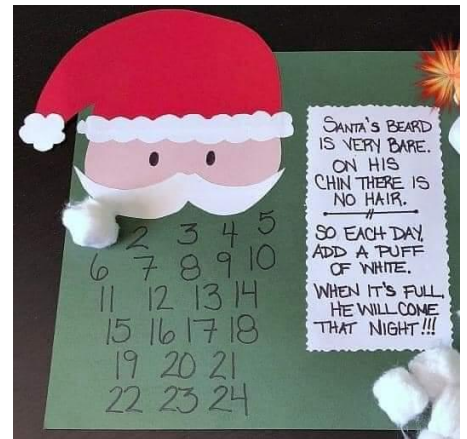 2 3 4 5
6 7 8 9 10
11 12 13 14
15 16 17 18
19 20 21
22 23 24
SANTA'S BEARD
IS VERY BARE.
ON HIS
CHIN THERE IS
NO HAIR.
SO EACH DAY,
ADD A PUFF
OF WHITE.
WHEN IT'S FULL,
HE WILL COME
THAT NIGHT!!!